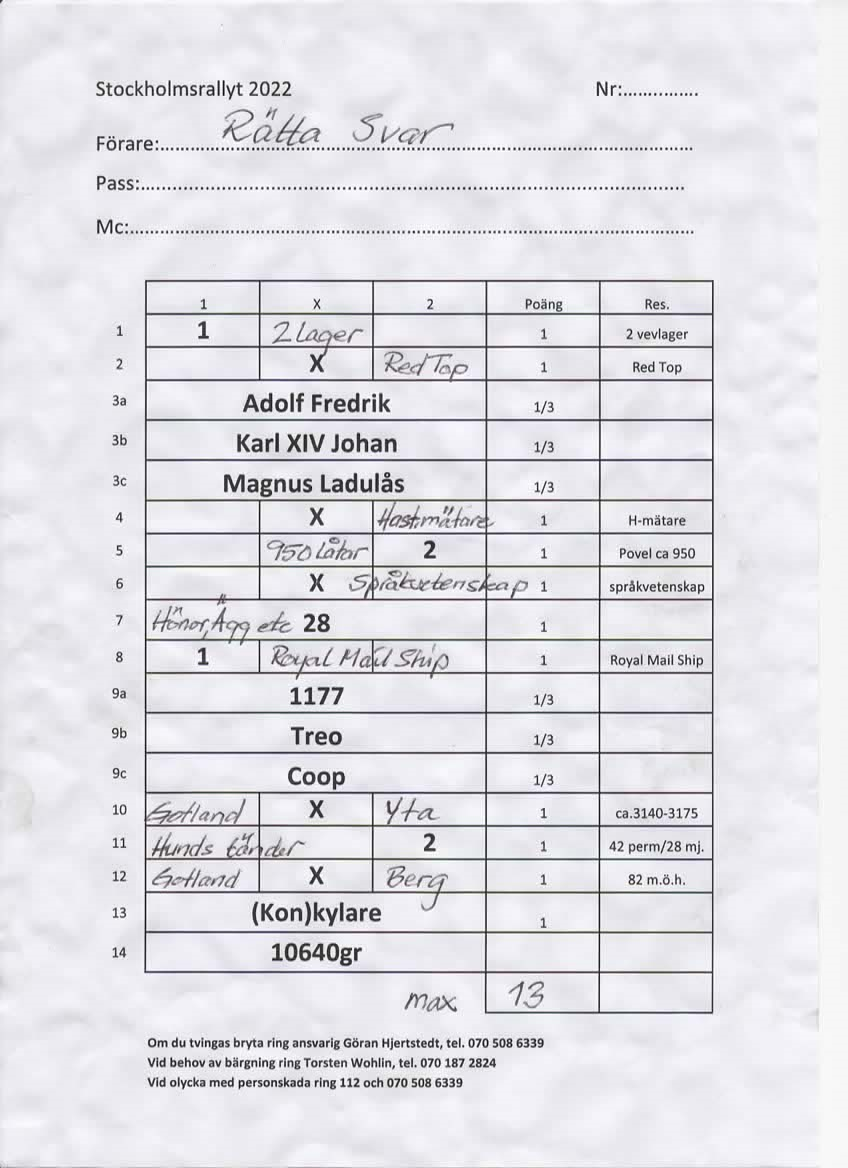 Stockholmsrallyt 2022 Nr:...............
Förare:..... Rätta Svar .....
Pass:.....
Mc:.....
1 X 2 Poäng Res.
1 1 2 Lager 1 2 vevlager
2 X Red Top 1 Red Top
3a Adolf Fredrik 1/3
3b Karl XIV Johan 1/3
3c Magnus Ladulås 1/3
4 X Hast.mätare 1 H-mätare
5 950 Låtar 2 1 Povel ca 950
6 X Språkvetenskap 1 språkvetenskap
7 Hönor, Ägg etc 28 1
8 1 Royal Mail Ship 1 Royal Mail Ship
9a 1177 1/3
9b Treo 1/3
9c Coop 1/3
10 Gotland X Yta 1 ca.3140-3175
11 Hunds tänder 2 1 42 perm/28 mj.
12 Gotland X Berg 1 82 m.ö.h.
13 (Kon)kylare 1
14 10640gr
max 13
Om du tvingas bryta ring ansvarig Göran Hjertstedt, tel. 070 508 6339
Vid behov av bärgning ring Torsten Wohlin, tel. 070 187 2824
Vid olycka med personskada ring 112 och 070 508 6339